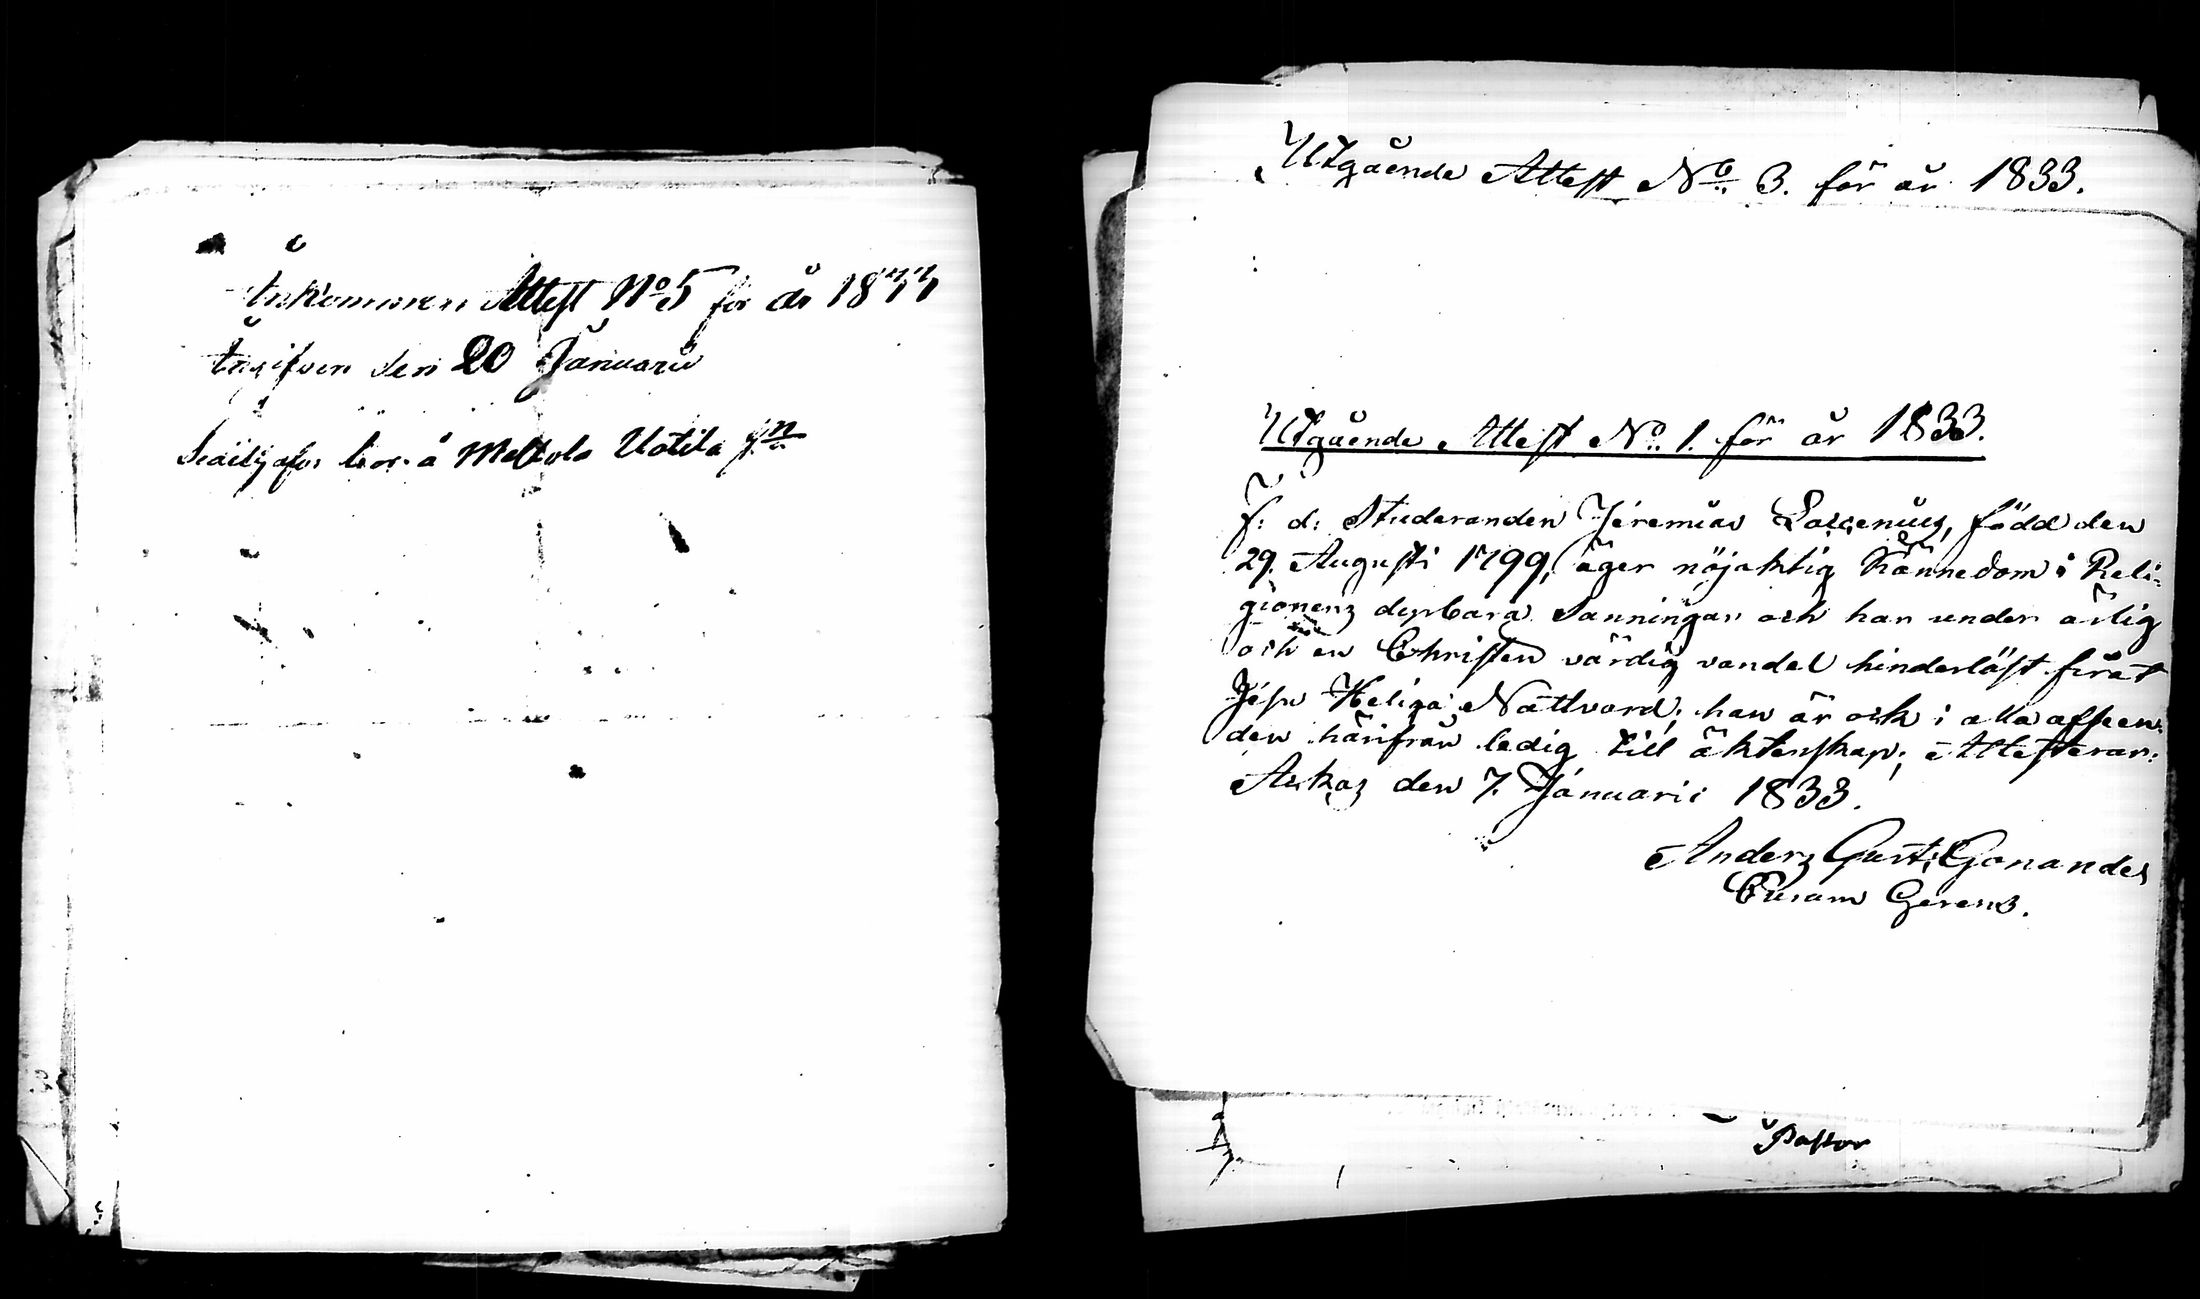 Inkommen Attest No 5 för år 1833
Ingifven den 20 Januarii
bor å Mellola Uotila
Utgående Attest No. 3. för år 1833.
Utgående Attest No. 1. för år 1833.
f: d: Studeranden Jeremias Laccenius, född den
29. Augusti 1799, äger nöjaktig kännedom i Reli-
gionens dyrbara Sanningar och har under ärlig
och en Christen värdig vandel hinderlöst firat
Jesu Heliga Nattvard; han är ock i alla afseen-
den härifrån ledig till äktenskap; Attesterar:
Askas den 7. Januarii 1833.
Anders Gust: Gonander
Curam Gerens.
Pastor